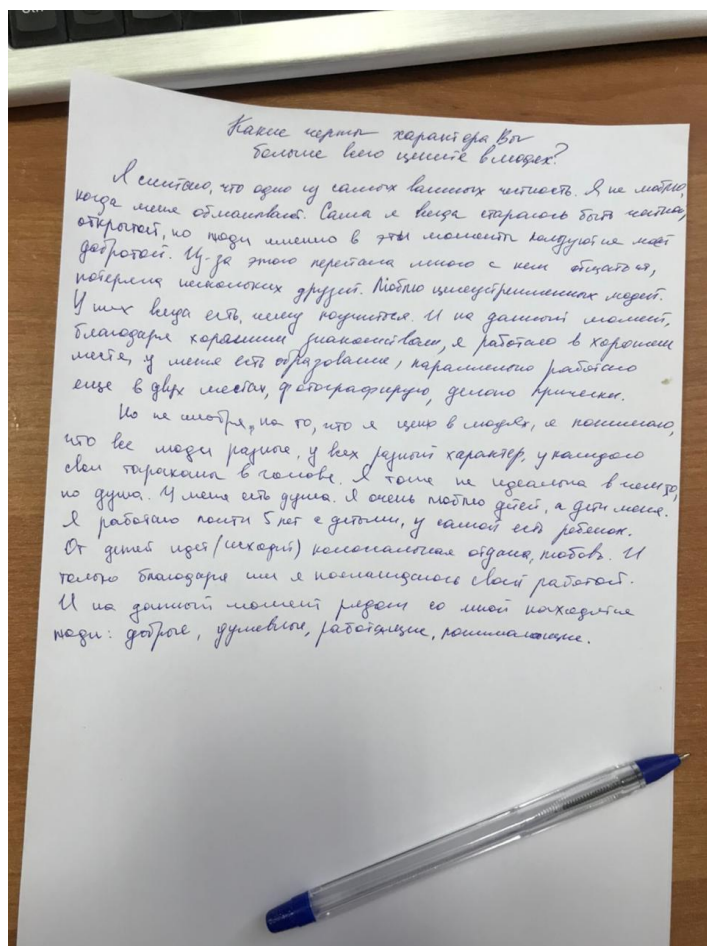 Какие черты характера Вы
больше всего цените в людях?
Я считаю, что одно из самых важных честность. Я не люблю,
когда меня обманывают. Сама я всегда стараюсь быть честной,
открытой, но люди именно в эти моменты пользуются моей
добротой. Из-за этого перестала много с кем общаться,
потеряла нескольких друзей. Люблю целеустремленных людей.
У них всегда есть, чему поучиться. И на данный момент,
благодаря хорошим знакомствам, я работаю в хорошем
месте, у меня есть образование, параллельно работаю
еще в двух местах, фотографирую, делаю прически.
Но не смотря, на то, что я ценю в людях, я понимаю,
что все люди разные, у всех разный характер, у каждого
свои тараканы в голове. Я тоже не идеальна в чем-то,
но душа. У меня есть душа. Я очень люблю детей, а дети меня.
Я работаю почти 5 лет с детьми, у самой есть ребенок.
От детей идет/(исходит) колоссальная отдача, любовь. И
только благодаря им я наслаждаюсь своей работой.
И на данный момент рядом со мной находятся
люди: добрые, душевные, работящие, понимающие.